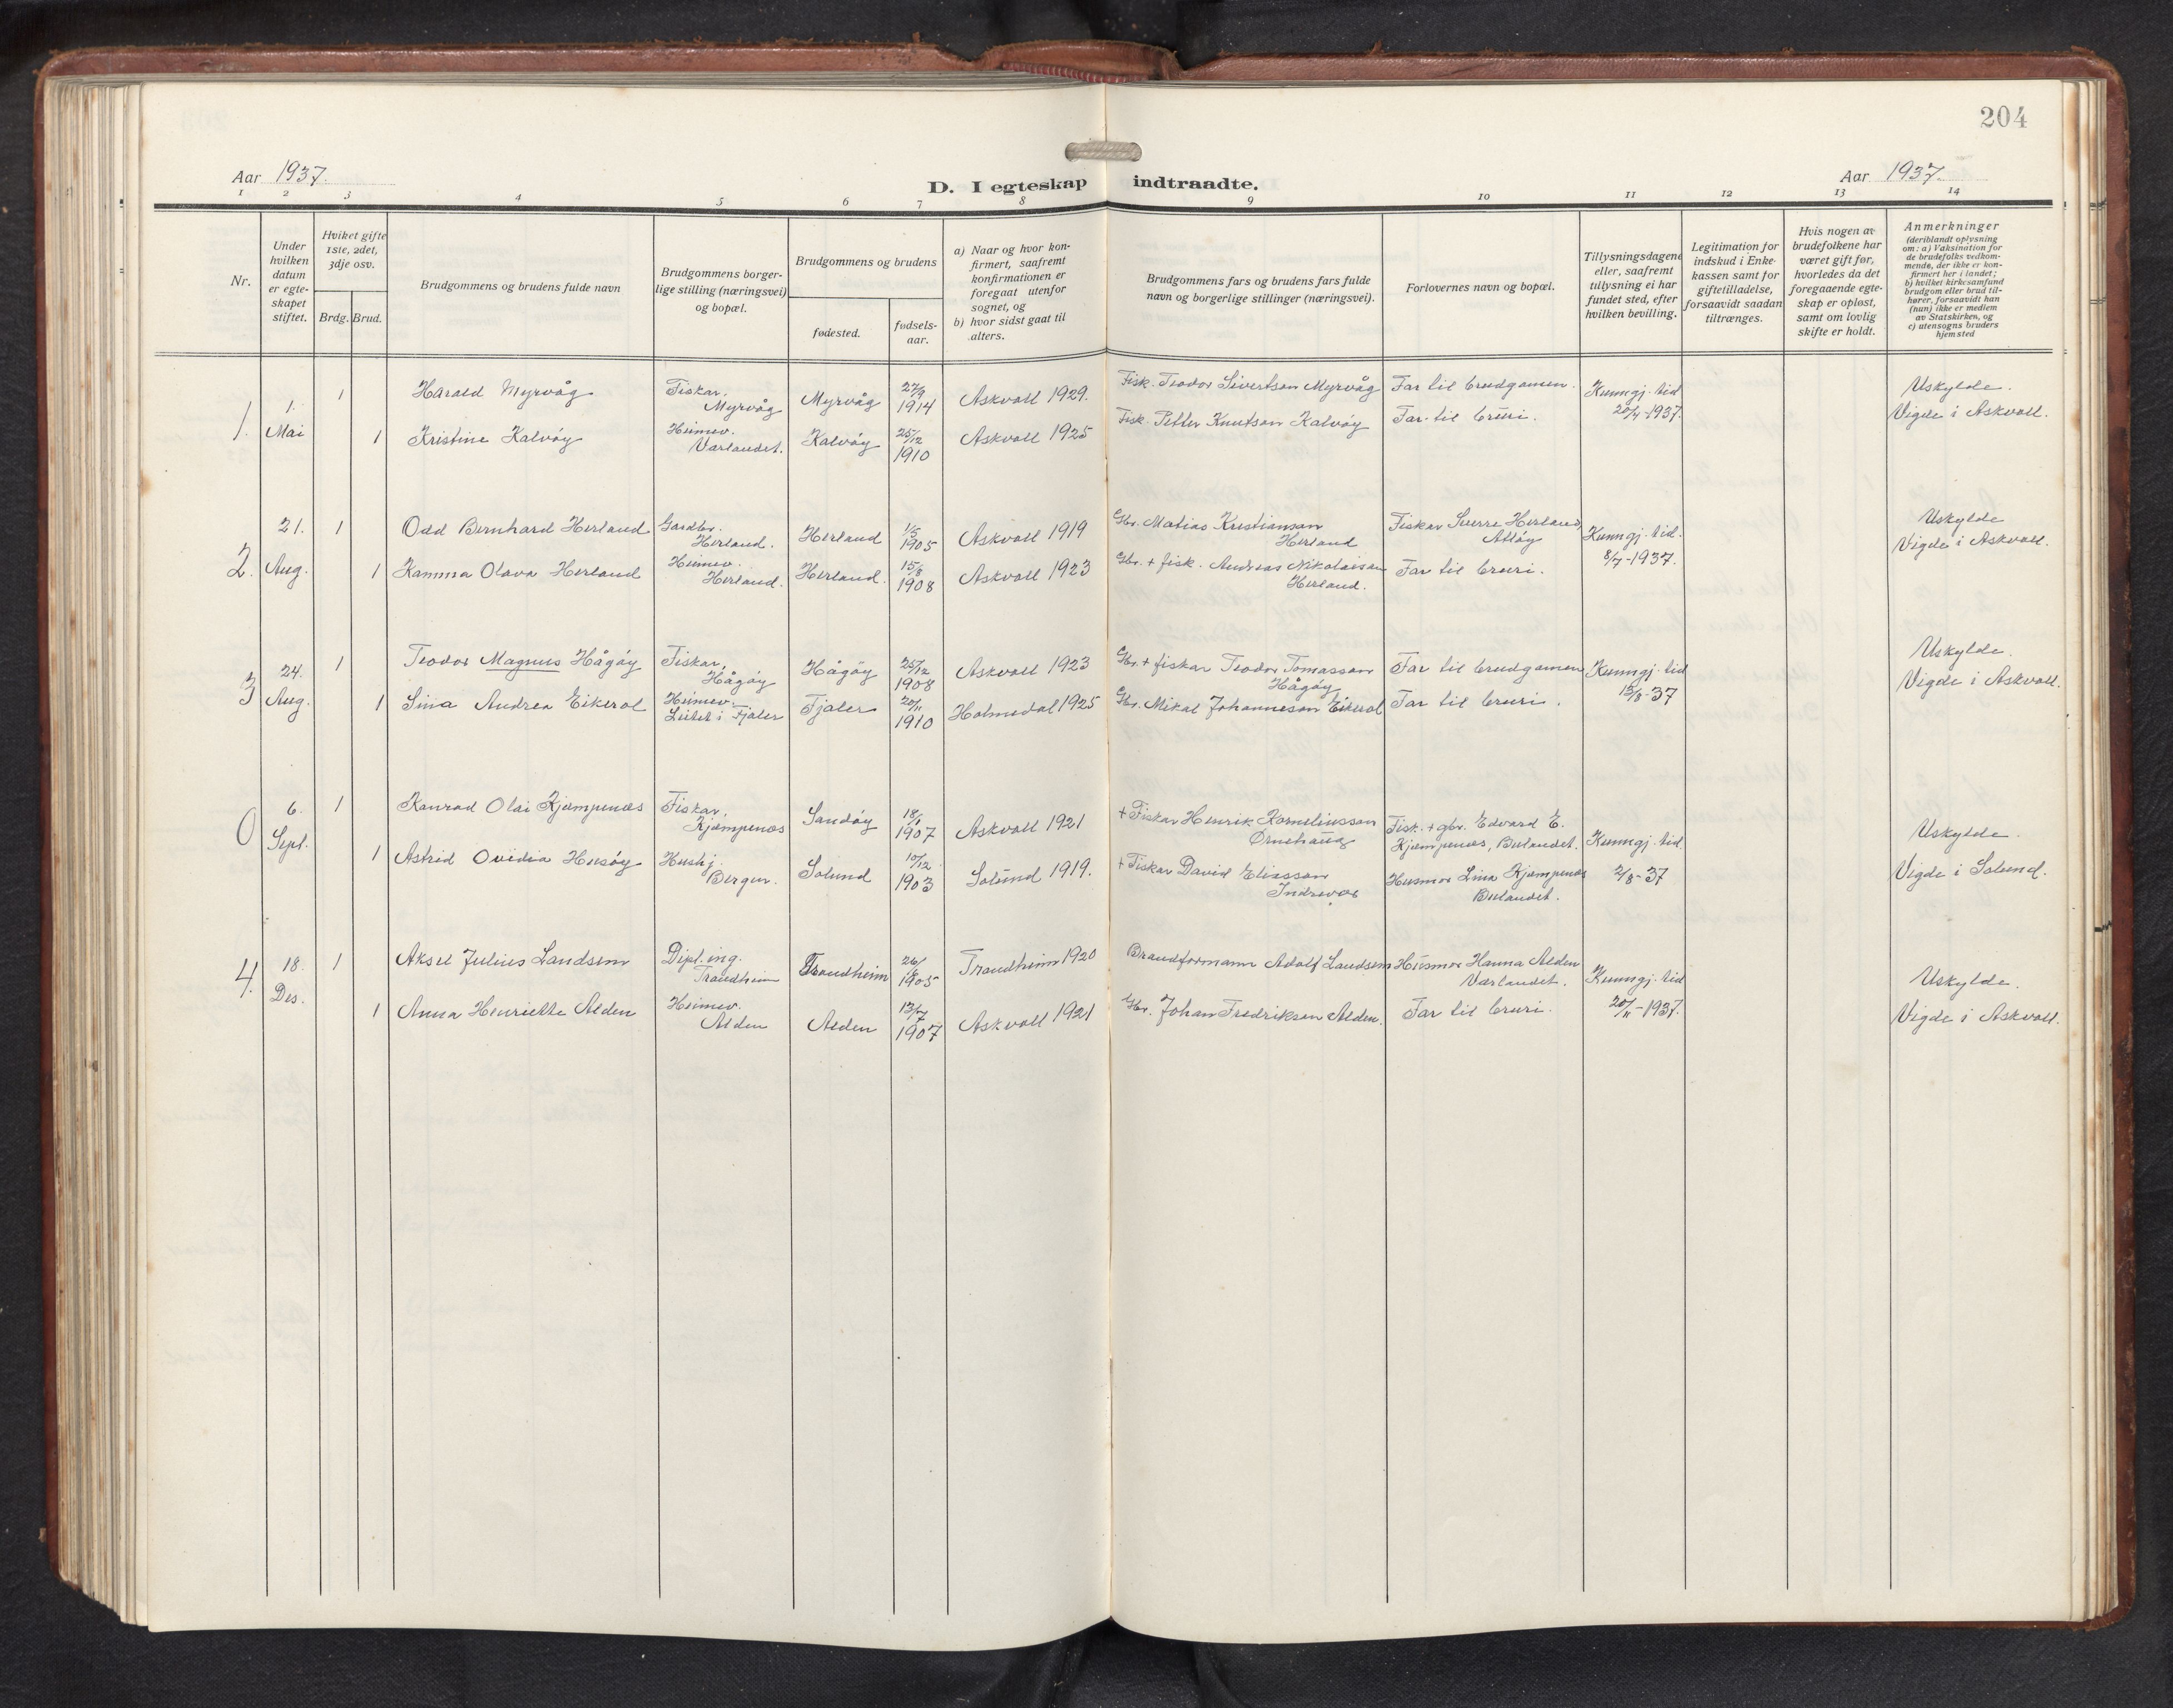 204
Aar 1937.
D. I egteskap indtraadte.
Aar 1937.
1 2 3 4 5 6 7 8 9 10 11 12 13 14
Nr.
Under hvilken datum er egteskapet stiftet.
Hvilket gifte 1ste, 2det, 3dje osv.
Brdg. Brud.
Brudgommens og brudens fulde navn
Brudgommens borgerlige stilling (næringsvei) og bopæl.
Brudgommens og brudens
fødested.
fødselsaar.
a) Naar og hvor konfirmert, saafremt konfirmationen er foregaat utenfor sognet, og
b) hvor sidst gaat til alters.
Brudgommens fars og brudens fars fulde navn og borgerlige stillinger (næringsvei).
Forlovernes navn og bopæl.
Tillysningsdagene eller, saafremt tillysning ei har fundet sted, efter hvilken bevilling.
Legitimation for indskud i Enkekassen samt for giftetilladelse, forsaavidt saadan tiltrænges.
Hvis nogen av brudefolkene har været gift før, hvorledes da det foregaaende egteskap er opløst, samt om lovlig skifte er holdt.
Anmerkninger
(deriblandt oplysning om: a) Vaksination for de brudefolks vedkommende, der ikke er konfirmert her i landet;
b) hvilket kirkesamfund brudgom eller brud tilhører, forsaavidt han (hun) ikke er medlem av Statskirken, og
c) utensogns bruders hjemsted
1. 1. Mai
1 Harald Myrvåg Fiskar, Myrvåg Myrvåg 27/9 1914 Askvoll 1929. Fisk. Teodor Sivertson Myrvåg Far til brudgomen. Kunngj. tid 20/4-1937. Uskylde.
1 Kristine Kalvøy Heimev. Værlandet. Kalvøy 25/12 1910 Askvoll 1925 Fisk. Petter Knutson Kalvøy Far til bruri. Vigde i Askvoll.
2. 21. Aug.
1 Odd Bernhard Herland Gardbr. Herland. Herland 1/5 1905 Askvoll 1919 Gbr. Matias Kristianson Herland Fiskar Sverre Herland, Atløy Kunngj. tid. 8/7-1937. Uskylde
1 Kamma Olava Herland Heimev. Herland. Herland. 15/8 1908 Askvoll 1923 Gbr. + fisk. Andreas Nikolaison Herland. Far til bruri. Vigde i Askvoll.
3 24. Aug.
1 Teodor Magnus Hågøy Fiskar, Hågøy Hågøy 25/12 1908 Askvoll 1923 Gbr. + fiskar Teodor Tomasson Hågøy Far til brudgomen Kunngj. tid 15/8-37 Uskylde.
1 Sina Andrea Eikerol Heimev. i Fjaler Fjaler 20/11 1910 Holmedal 1925 Gbr. Mikal Johanneson Eikerol Far til bruri. Vigde i Askvoll.
0 6. Sept.
1 Konrad Olai Kjempenes Fiskar, Kjempenes Sandøy 18/1 1907 Askvoll 1921 + Fiskar Henrik Korneliusson Ørnehaug Fisk. + gbr. Edvard E. Kjempenes, Bulandet. Kunngj. tid. 2/8-37 Uskylde.
1 Astrid Ovidia Husøy Hushj. Bergen. Solund 10/12 1903 Solund 1919. + Fiskar David Eliasson Indrevær Husmor Lina Kjempenes Bulandet. Vigde i Solund.
4. 18. Des.
1 Aksel Julius Landsem Dipl. ing. Trondheim Trondheim 26/8 1905 Trondheim 1920 Brandformann Adolf Landsem Husmor Hanna Alden Værlandet. Kunngj. tid 20/11-1937. Uskylde.
1 Anna Henriette Alden Heimev. Alden Alden 13/7 1907 Askvoll 1921 Gbr. Johan Fredrikson Alden. Far til bruri. Vigde i Askvoll.